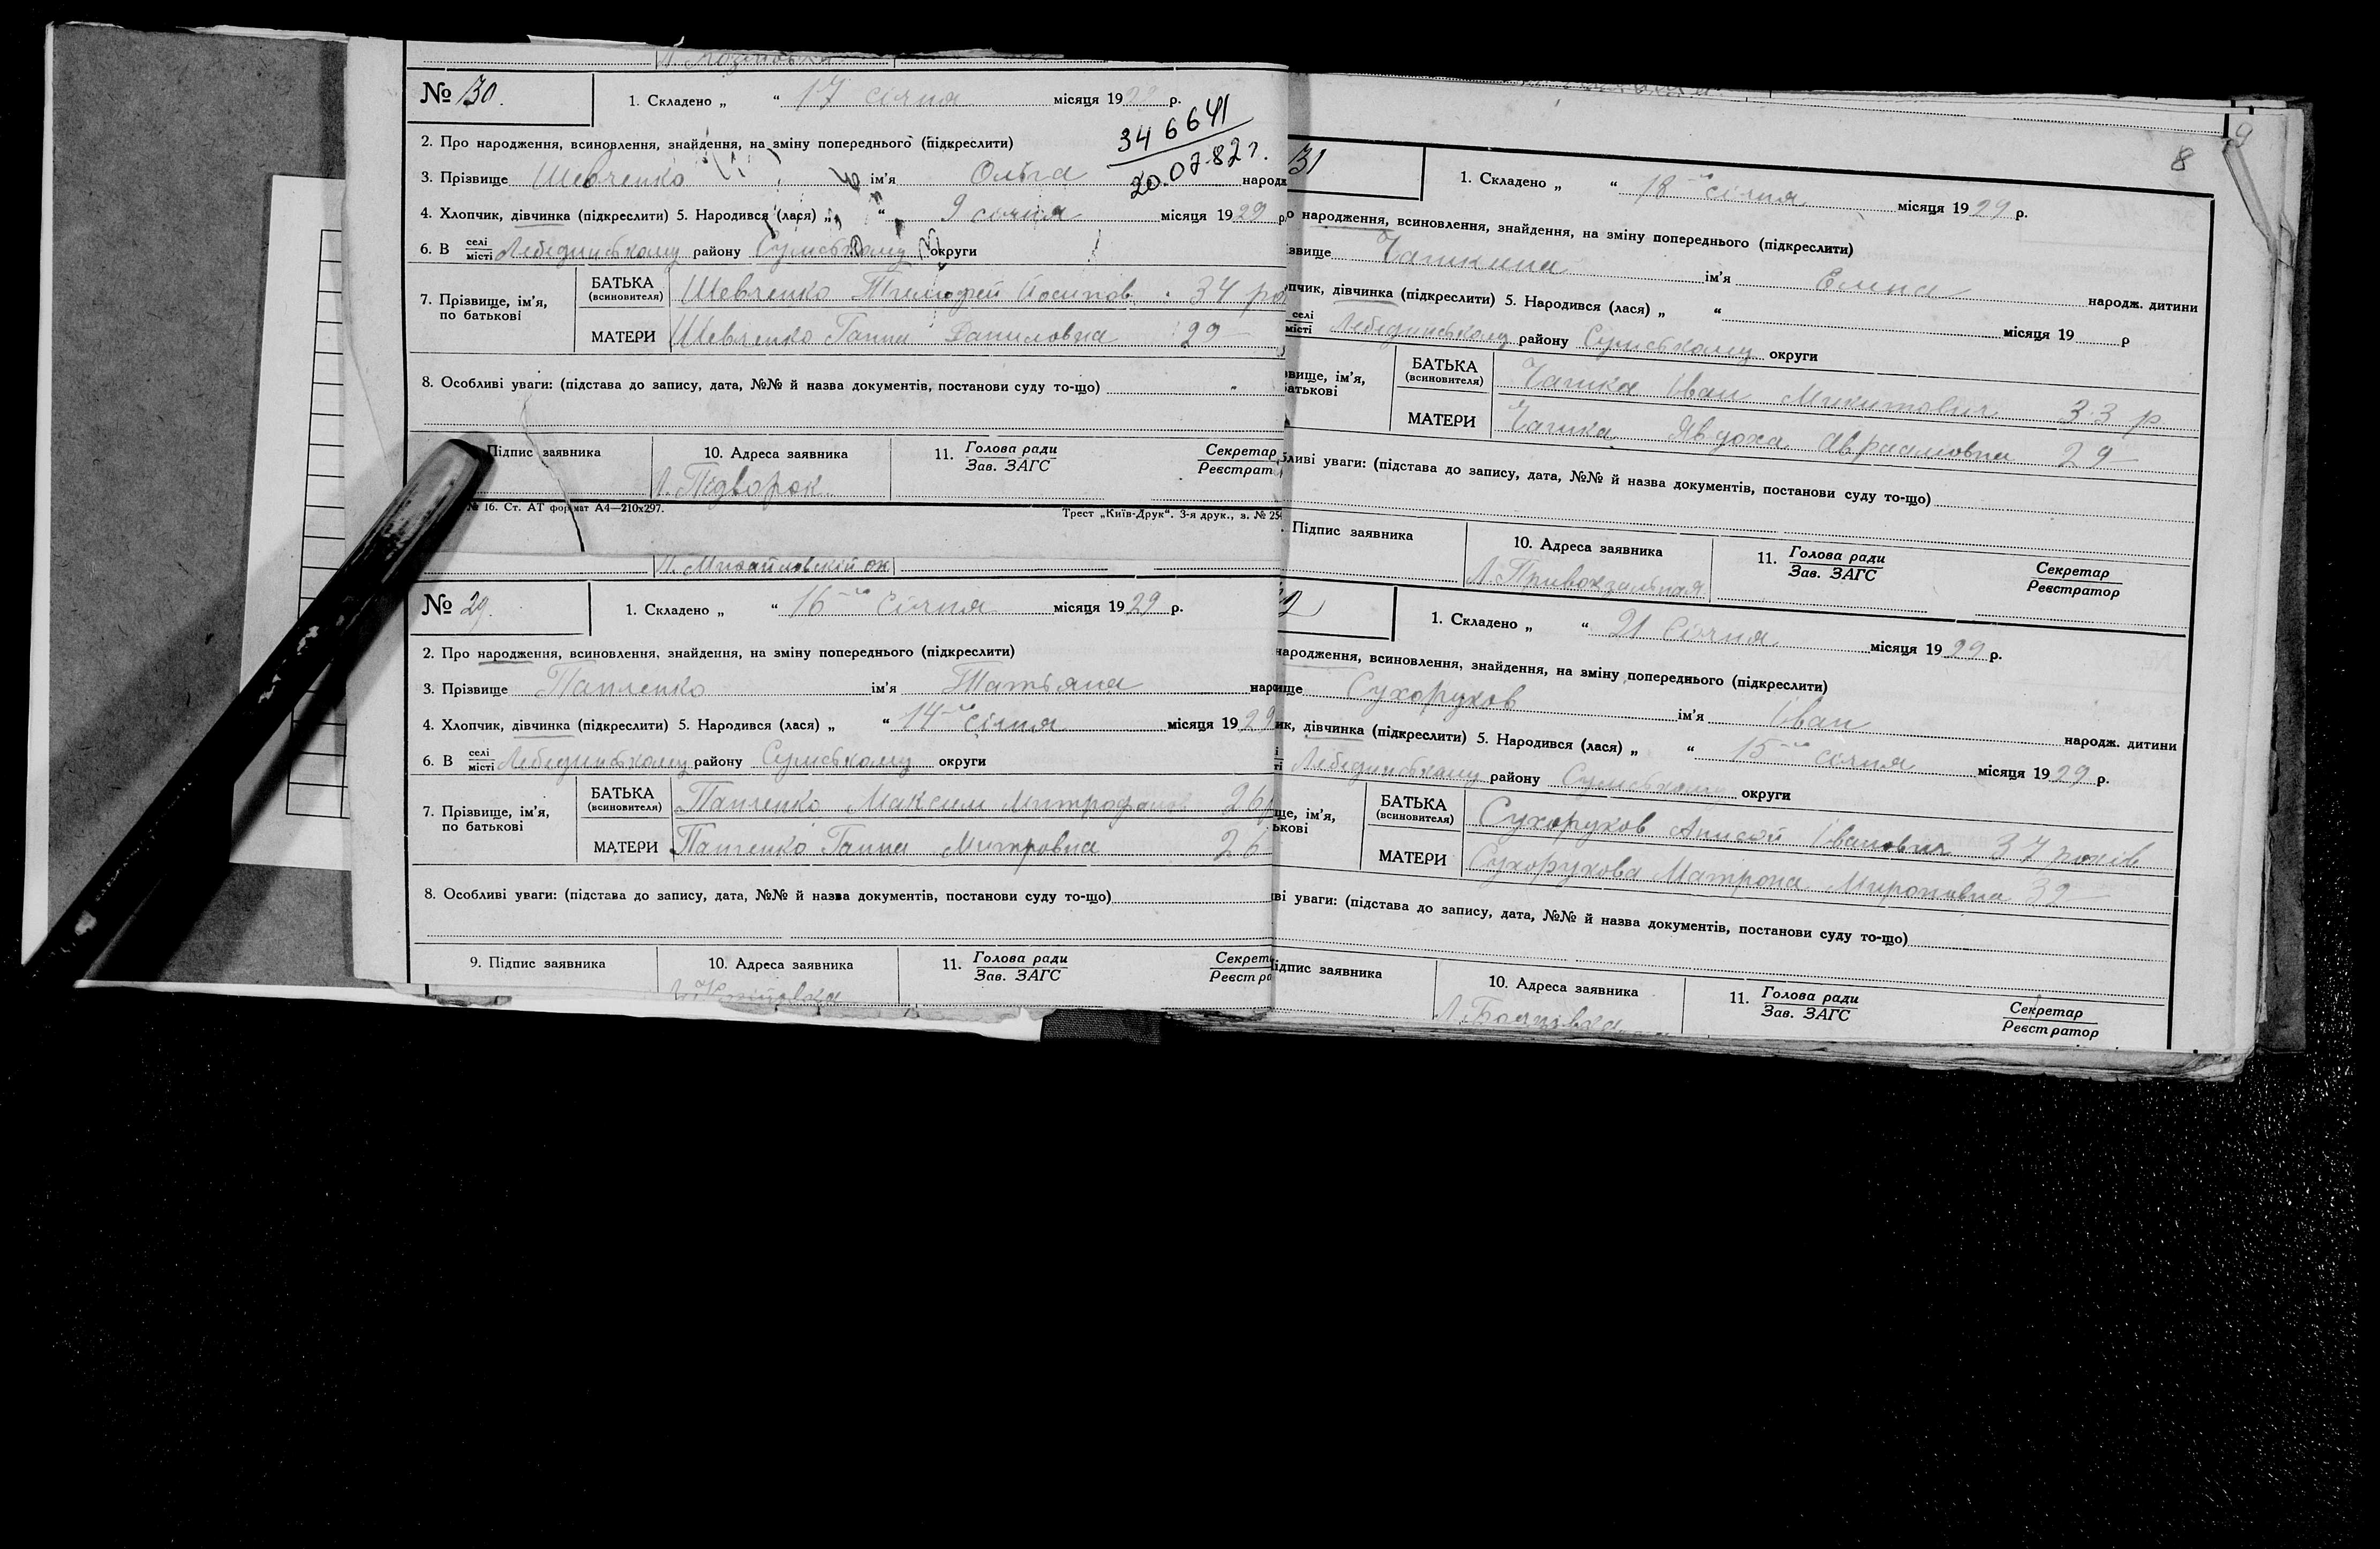 № 30.
1. Складено „ “ 17 січня місяця 1929 р.
346641
20.07.82 г.
2. Про народження, всиновлення, знайдення, на зміну попереднього (підкреслити)
3. Прізвище Шевченко ім'я Ольга народж
4. Хлопчик, дівчинка (підкреслити) 5. Народився (лася) „ “ 9 січня місяця 1929 р
6. В селі місті Лебединському району Сумському округи
7. Прізвище, ім'я, по батькові
БАТЬКА (всиновителя) Шевченко Тимофей Йосипов. 34 ро
МАТЕРИ Шевченко Ганна Даниловна 29
8. Особливі уваги: (підстава до запису, дата, №№ й назва документів, постанови суду то-що)
Підпис заявника
10. Адреса заявника
11. Голова ради
Зав. ЗАГС
Секретар
Реєстрат
Л. Підворок
№ 16. Ст. АТ формат А4—210х297.
Трест „Київ-Друк“. 3-я друк., з. № 25
Л. Михайловскій
№ 29.
1. Складено „ “ 16-го Січня місяця 1929 р.
2. Про народження, всиновлення, знайдення, на зміну попереднього (підкреслити)
3. Прізвище Панченко ім'я Татьяна наро
4. Хлопчик, дівчинка (підкреслити) 5. Народився (лася) „ “ 14-го січня місяця 1929
6. В селі місті Лебединському району Сумському округи
7. Прізвище, ім'я, по батькові
БАТЬКА (всиновителя) Панченко Максим Митрофанов 26 р
МАТЕРИ Панченко Ганна Митровна 26
8. Особливі уваги: (підстава до запису, дата, №№ й назва документів, постанови суду то-що)
9. Підпис заявника
10. Адреса заявника
11. Голова ради
Зав. ЗАГС
Секрет
Реєстра
9
8
31
1. Складено „ “ 18-го січня місяця 1929 р.
о народження, всиновлення, знайдення, на зміну попереднього (підкреслити)
звище ім'я народж. дитини
пчик, дівчинка (підкреслити) 5. Народився (лася) „ “ місяця 19 р
селі місті Лебединському району Сумському округи
вище, ім'я, батькові
БАТЬКА (всиновителя) Чашка Іван Микитович 33 р
МАТЕРИ Чашка Явдоха Авраамовна 29
бливі уваги: (підстава до запису, дата, №№ й назва документів, постанови суду то-що)
Підпис заявника
10. Адреса заявника
11. Голова ради
Зав. ЗАГС
Секретар
Реєстратор
Л. Привокзальная
2
1. Складено „ “ 21 Січня місяця 1929 р.
народження, всиновлення, знайдення, на зміну попереднього (підкреслити)
ище Сухоруков ім'я Іван народж. дитини
ик, дівчинка (підкреслити) 5. Народився (лася) „ “ 15-го січня місяця 1929 р.
і ті Лебединському району Сумському округи
ще, ім'я, ькові
БАТЬКА (всиновителя) Сухоруков Іванович 37 років
МАТЕРИ Сухорукова Матрона Мироновна 32
ві уваги: (підстава до запису, дата, №№ й назва документів, постанови суду то-що)
ідпис заявника
10. Адреса заявника
11. Голова ради
Зав. ЗАГС
Секретар
Реєстратор